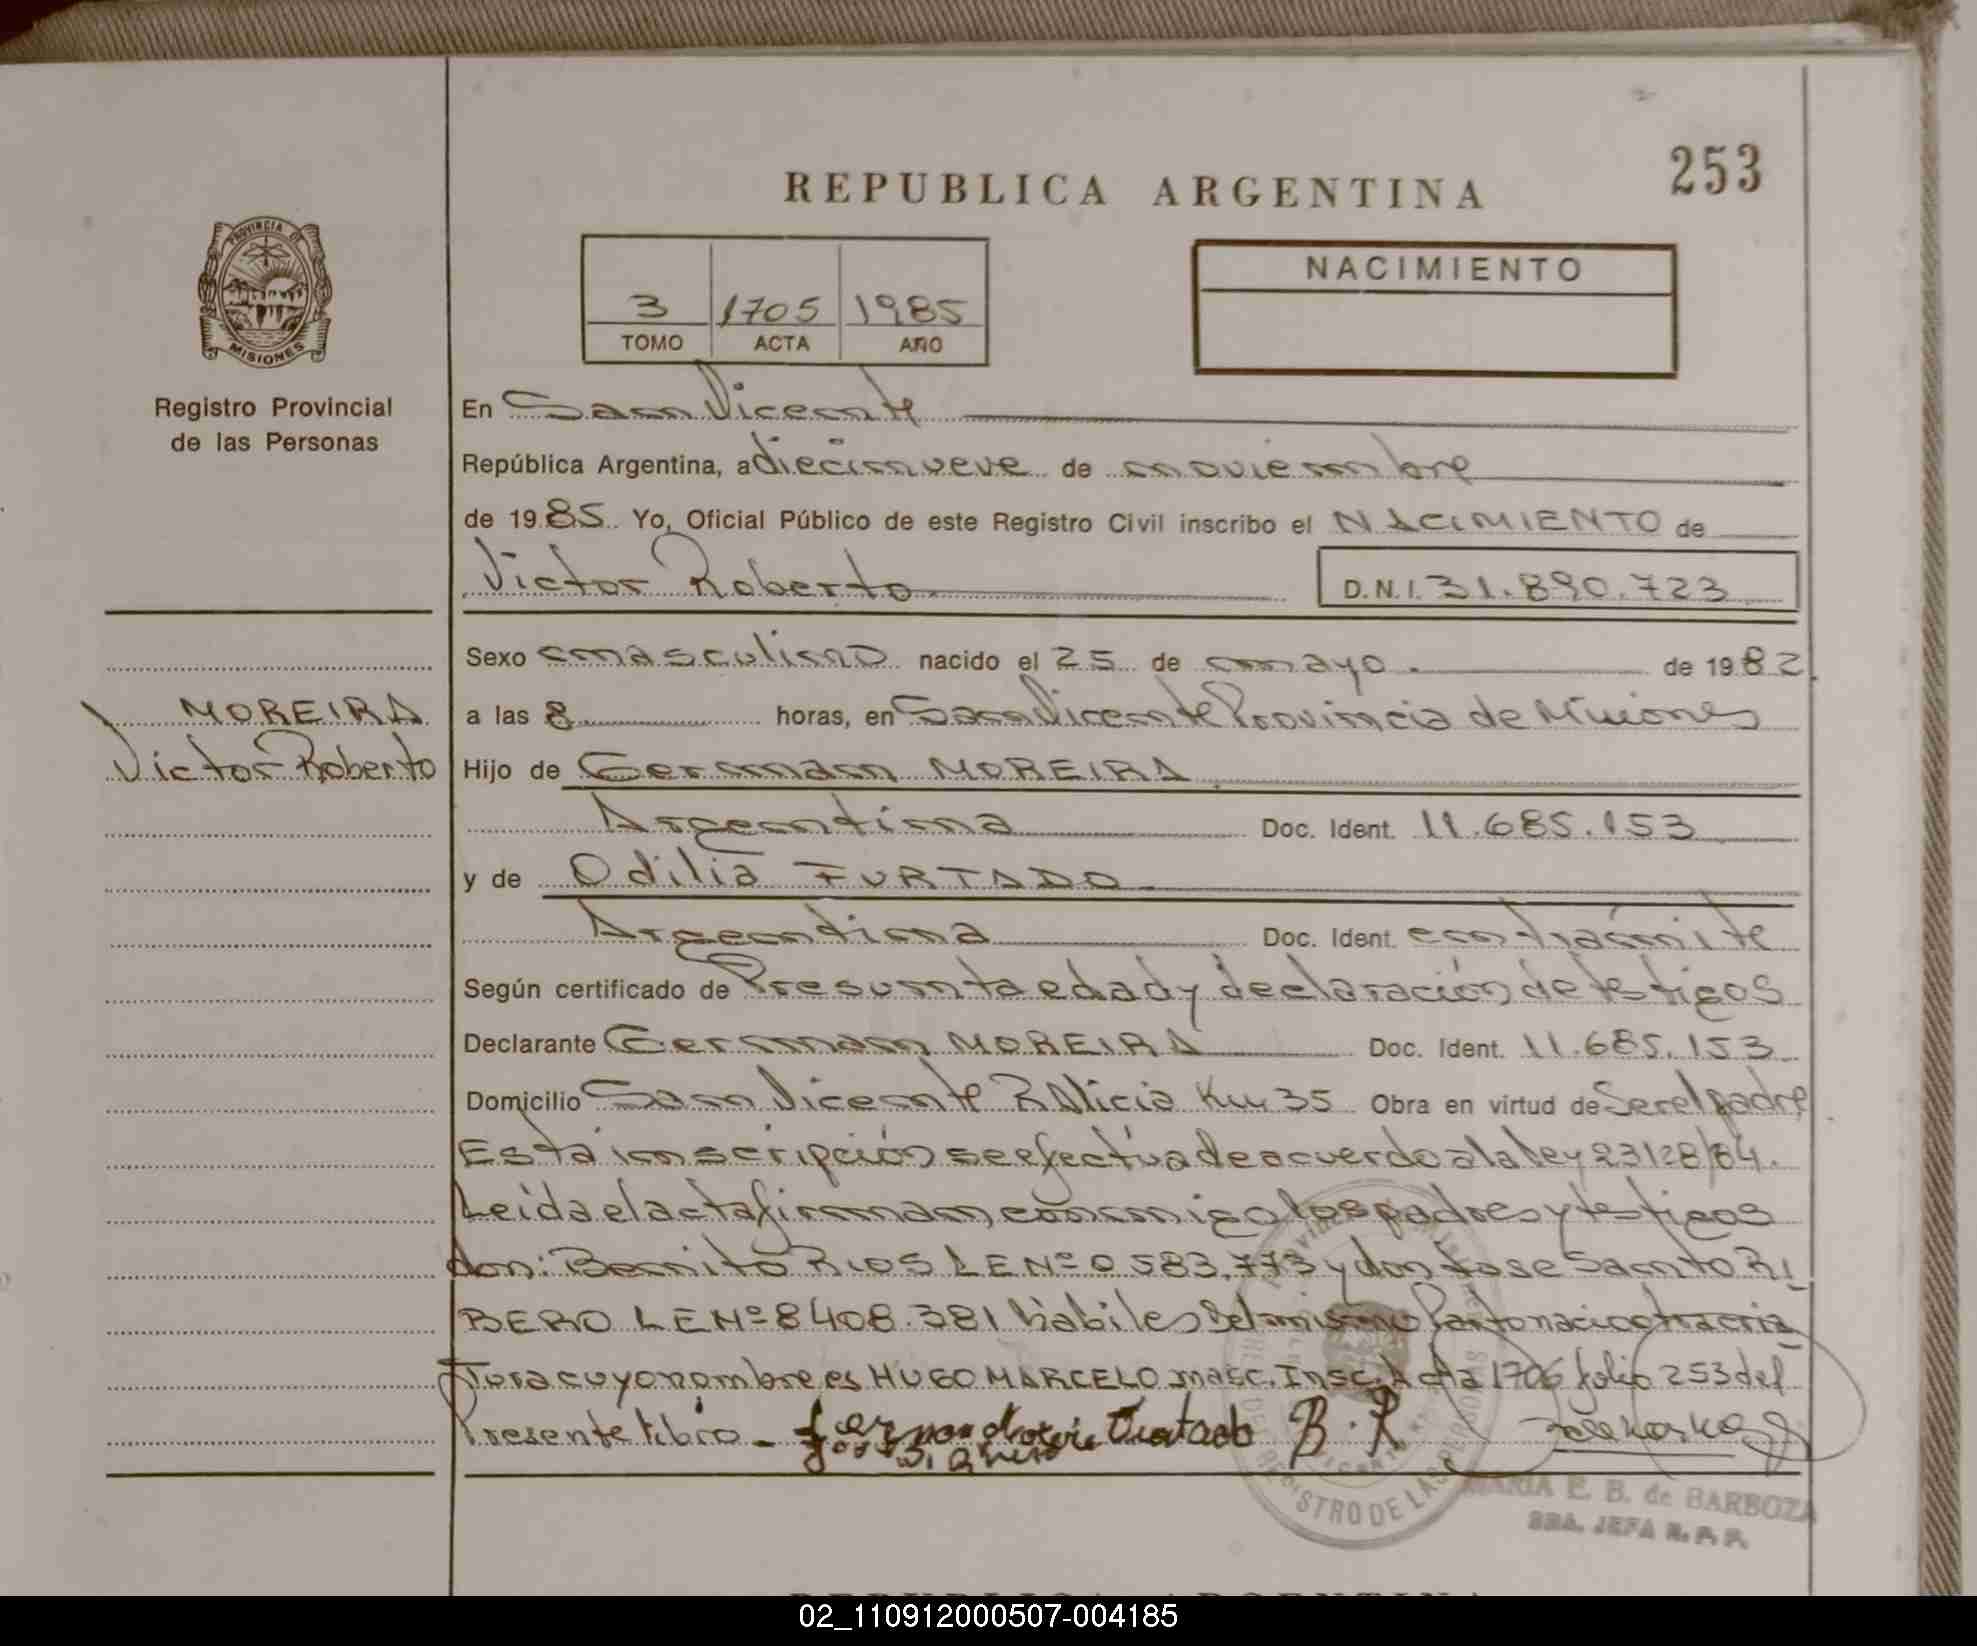 253
REPUBLICA ARGENTINA
PROVINCIA DE
MISIONES
Registro Provincial
de las Personas
3 1705 1985
TOMO ACTA AÑO
NACIMIENTO
En San Vicente
República Argentina, a diecinueve de noviembre
de 1985 Yo, Oficial Público de este Registro Civil inscribo el NACIMIENTO de
Victor Roberto D.N.I. 31.890.723
Sexo masculino nacido el 25 de mayo de 1982
MOREIRA
Victor Roberto
a las 8 horas, en San Vicente Provincia de Misiones
Hijo de German MOREIRA
Argentina Doc. Ident. 11.685.153
y de Odilia FURTADO
Argentina Doc. Ident. en trámite
Según certificado de Presunta edad y declaración de testigos
Declarante German MOREIRA Doc. Ident. 11.685.153
Domicilio San Vicente R Alicia Km 35 Obra en virtud de Ser el padre
Esta inscripción se efectúa de acuerdo a la ley 23128/84.
Leída el acta firman conmigo los padres y testigos
don: Bernito RIOS LE Nº 0.583.773 y don Jose Santo RI
BERO LE Nº 8408.381 hábiles Del mismo Parto nacio otra cria
tura cuyo nombre es HUGO MARCELO masc. Insc. Acta 1706 folio 253 del
Presente libro B.R
REGISTRO DE LAS PERSONAS
MARIA E. B. de BARBOZA
SRA. JEFA R. P. P.
02_110912000507-004185